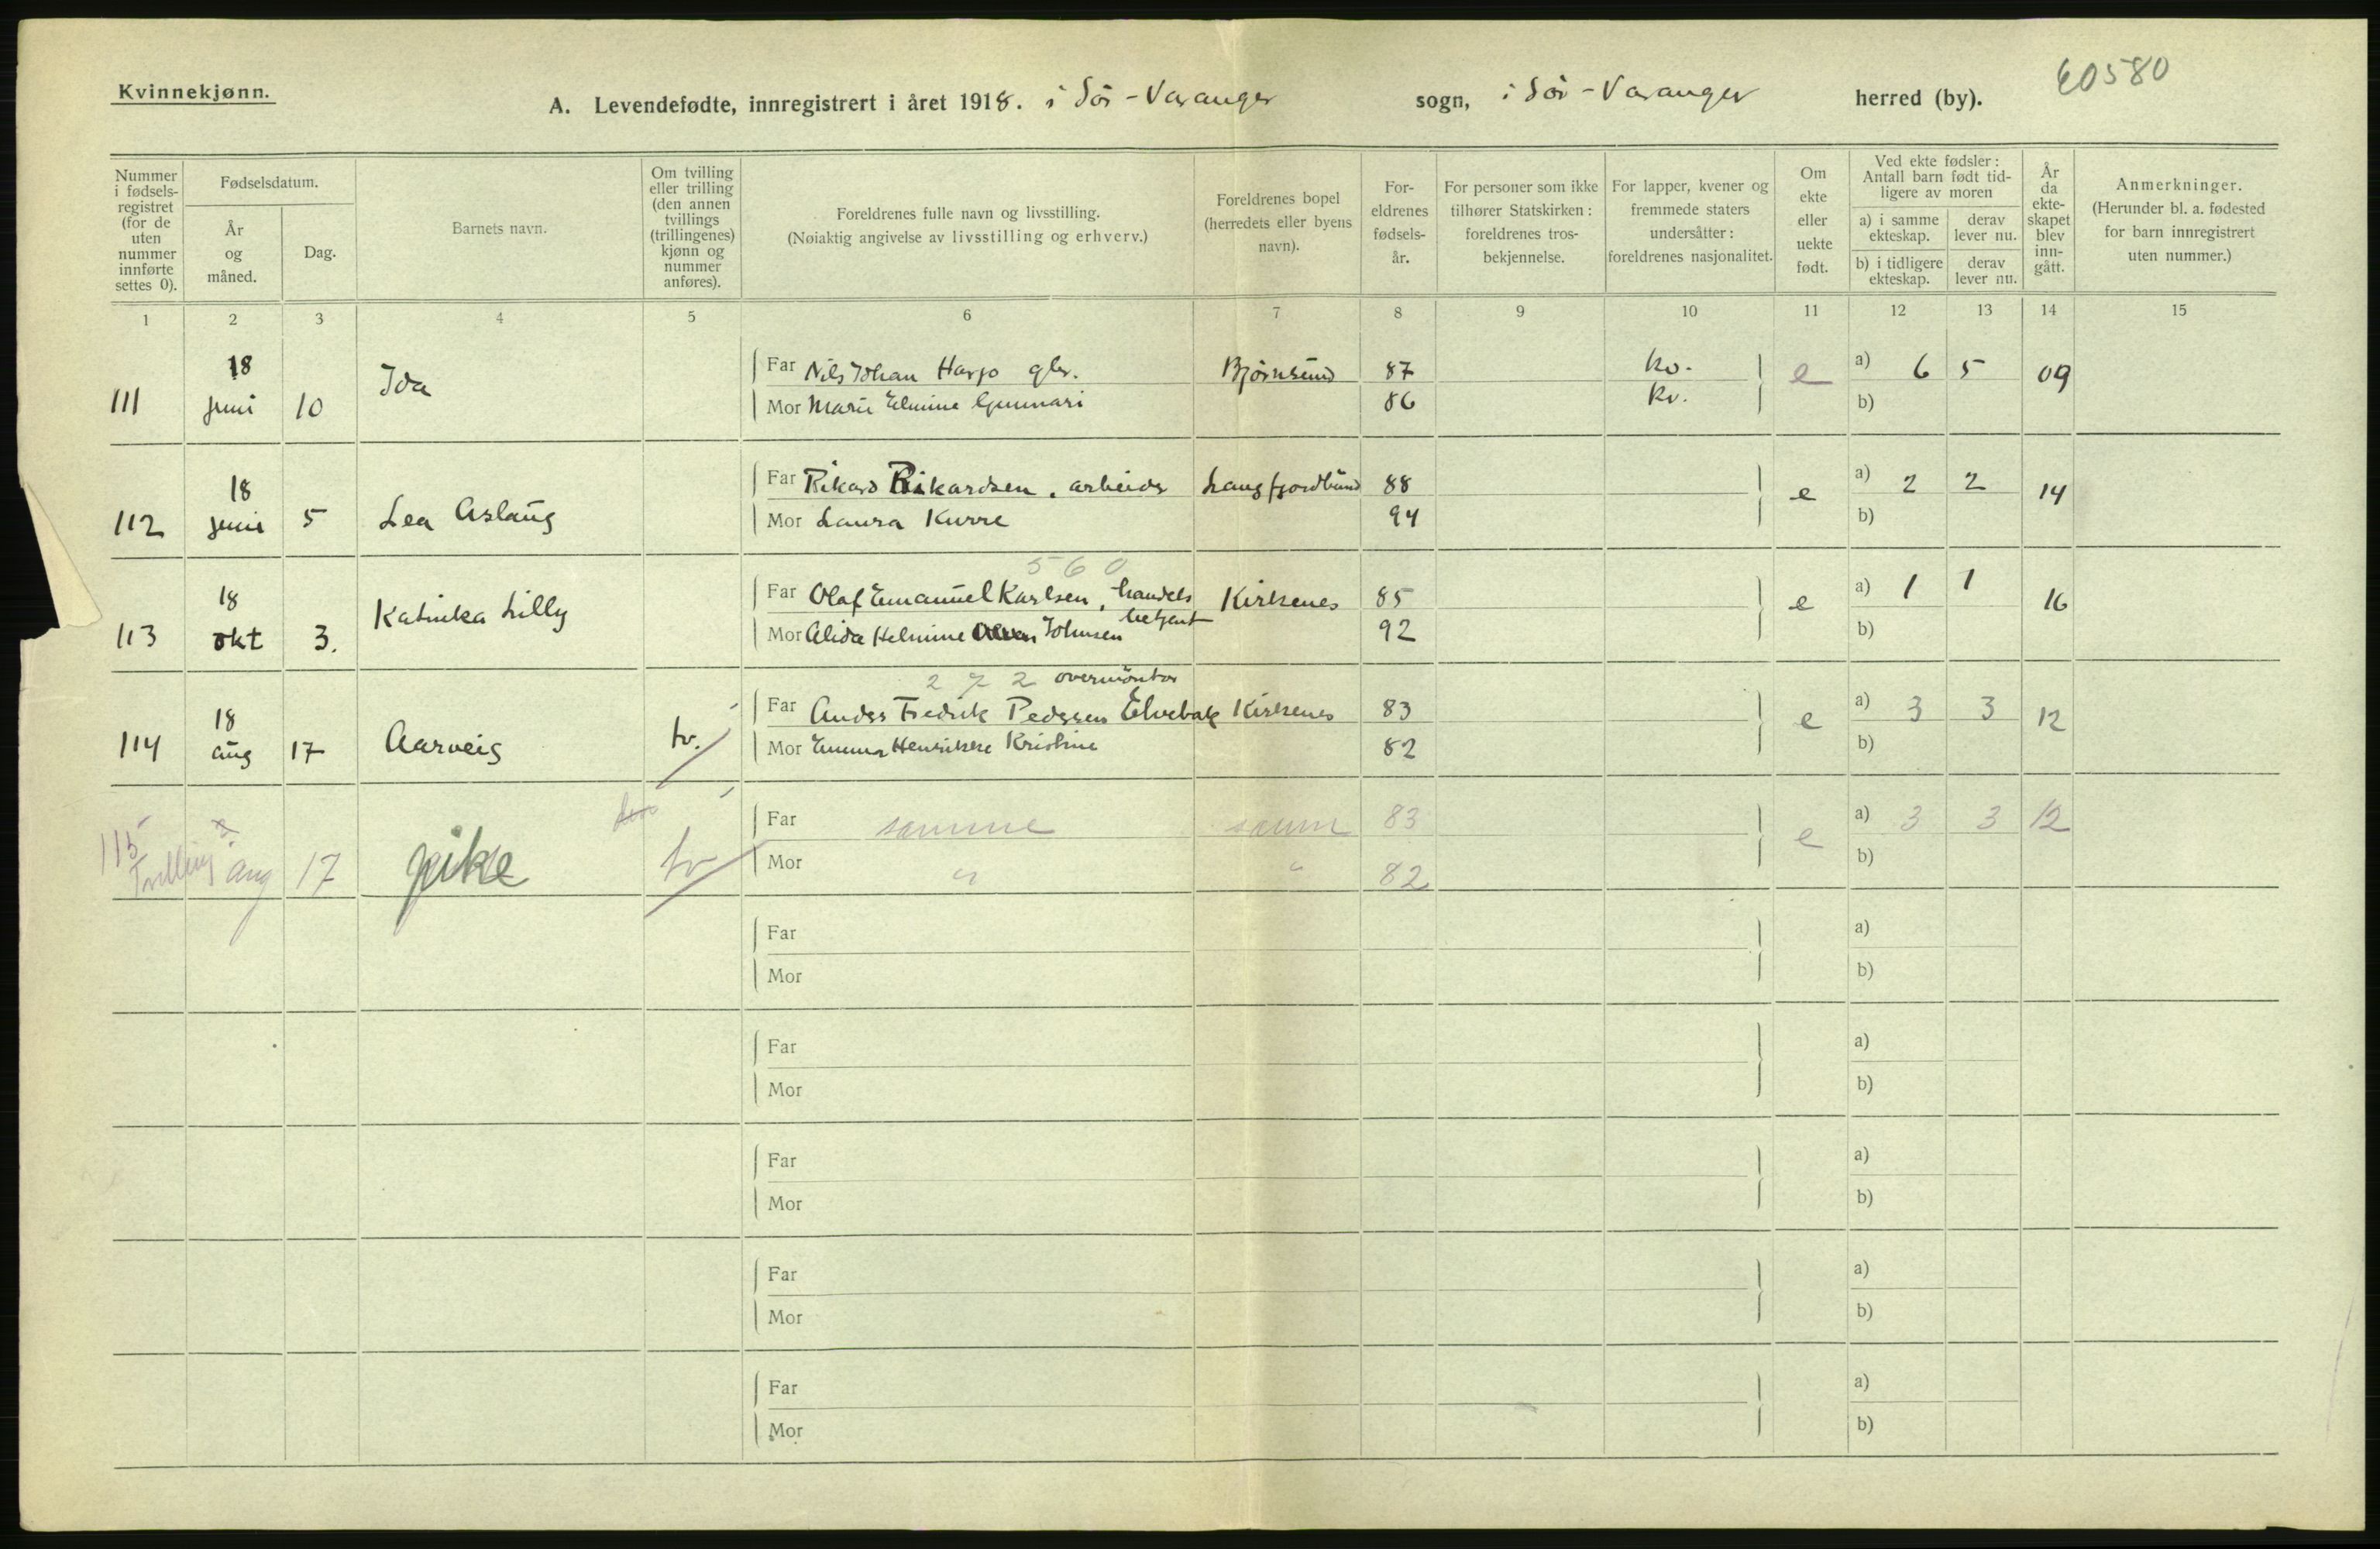 Kvinnekjønn.
A. Levendefødte, innregistrert i året 1918. i Sør-Varanger sogn, i Sør-Varanger herred (by).
60580
Nummer i fødselsregistret (for de uten nummer innførte settes 0).
Fødselsdatum.
År og måned.
Dag.
Barnets navn.
Om tvilling eller trilling (den annen tvillings (trillingenes) kjønn og nummer anføres).
Foreldrenes fulle navn og livsstilling.
(Nøiaktig angivelse av livsstilling og erhverv.)
Foreldrenes bopel (herredets eller byens navn).
Foreldrenes fødselsår.
For personer som ikke tilhører Statskirken: foreldrenes trosbekjennelse.
For lapper, kvener og fremmede staters undersåtter: foreldrenes nasjonalitet.
Om ekte eller uekte født.
Ved ekte fødsler: Antall barn født tidligere av moren
a) i samme ekteskap.
derav lever nu.
b) i tidligere ekteskap.
derav lever nu.
År da ekteskapet blev inngått.
Anmerkninger.
(Herunder bl. a. fødested for barn innregistrert uten nummer.)
1 2 3 4 5 6 7 8 9 10 11 12 13 14 15
111 18 juni 10 Ida
Far Nils Johan Harjo gbr. Bjørnsund 87 kv. e a) 6 5 09
Mor Marie Elmine Gunnari 86 kv. b)
112 18 juni 5 Lea Aslaug
Far Rikard Rikardsen, arbeider Langfjordbund 88 e a) 2 2 14
Mor Laura Kurre 94 b)
560
113 18 okt 3. Katinka Lilly
Far Olaf Emanuel Karlsen, handels Kirkenes 85 e a) 1 1 16
betjent
Mor Alida Helmine Johnsen 92 b)
272 overmontør
114 18 aug 17 Aarveig tv.
Far Anders Fredrik Pedersen Elvebak Kirkenes 83 e a) 3 3 12
Mor Emma Henrikke Kristine 82 b)
115 Tvilling aug 17 pike tv
Far samme samme 83 e a) 3 3 12
Mor " " 82 b)
Far a)
Mor b)
Far a)
Mor b)
Far a)
Mor b)
Far a)
Mor b)
Far a)
Mor b)